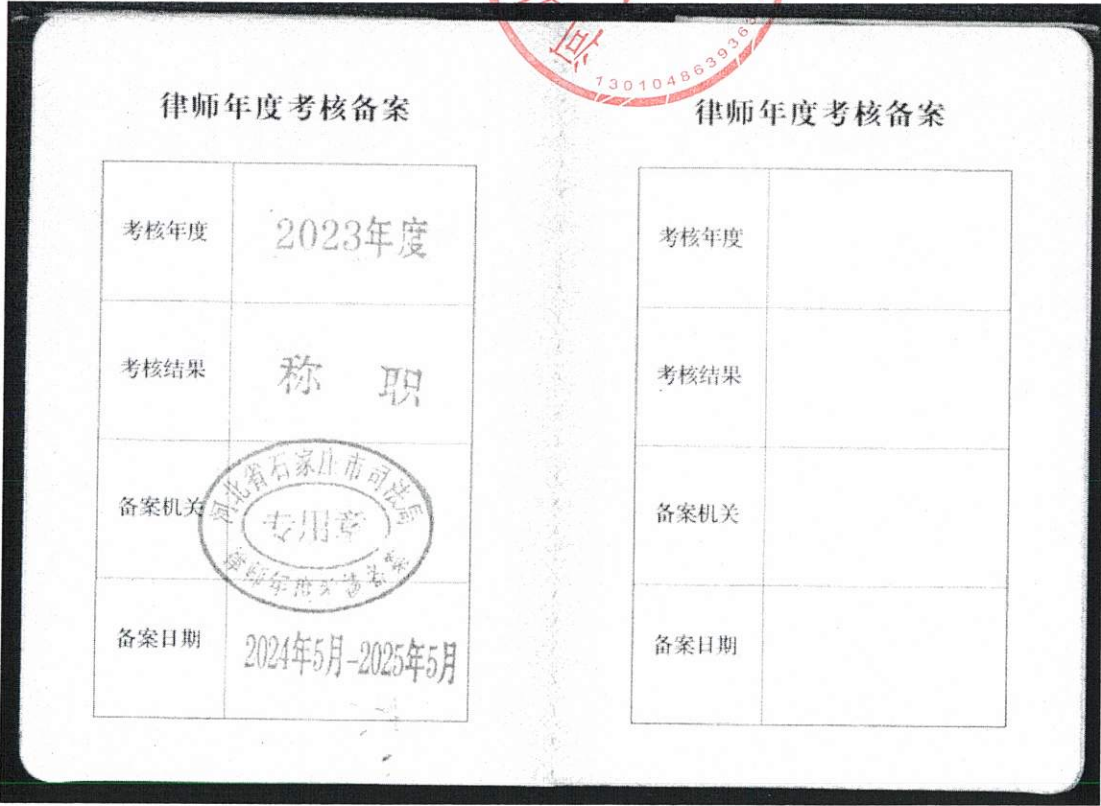 河
1301048639365
律师年度考核备案
考核年度 2023年度
考核结果 称 职
备案机关
河北省石家庄市司法局
专用章
备案日期 2024年5月-2025年5月
律师年度考核备案
考核年度
考核结果
备案机关
备案日期